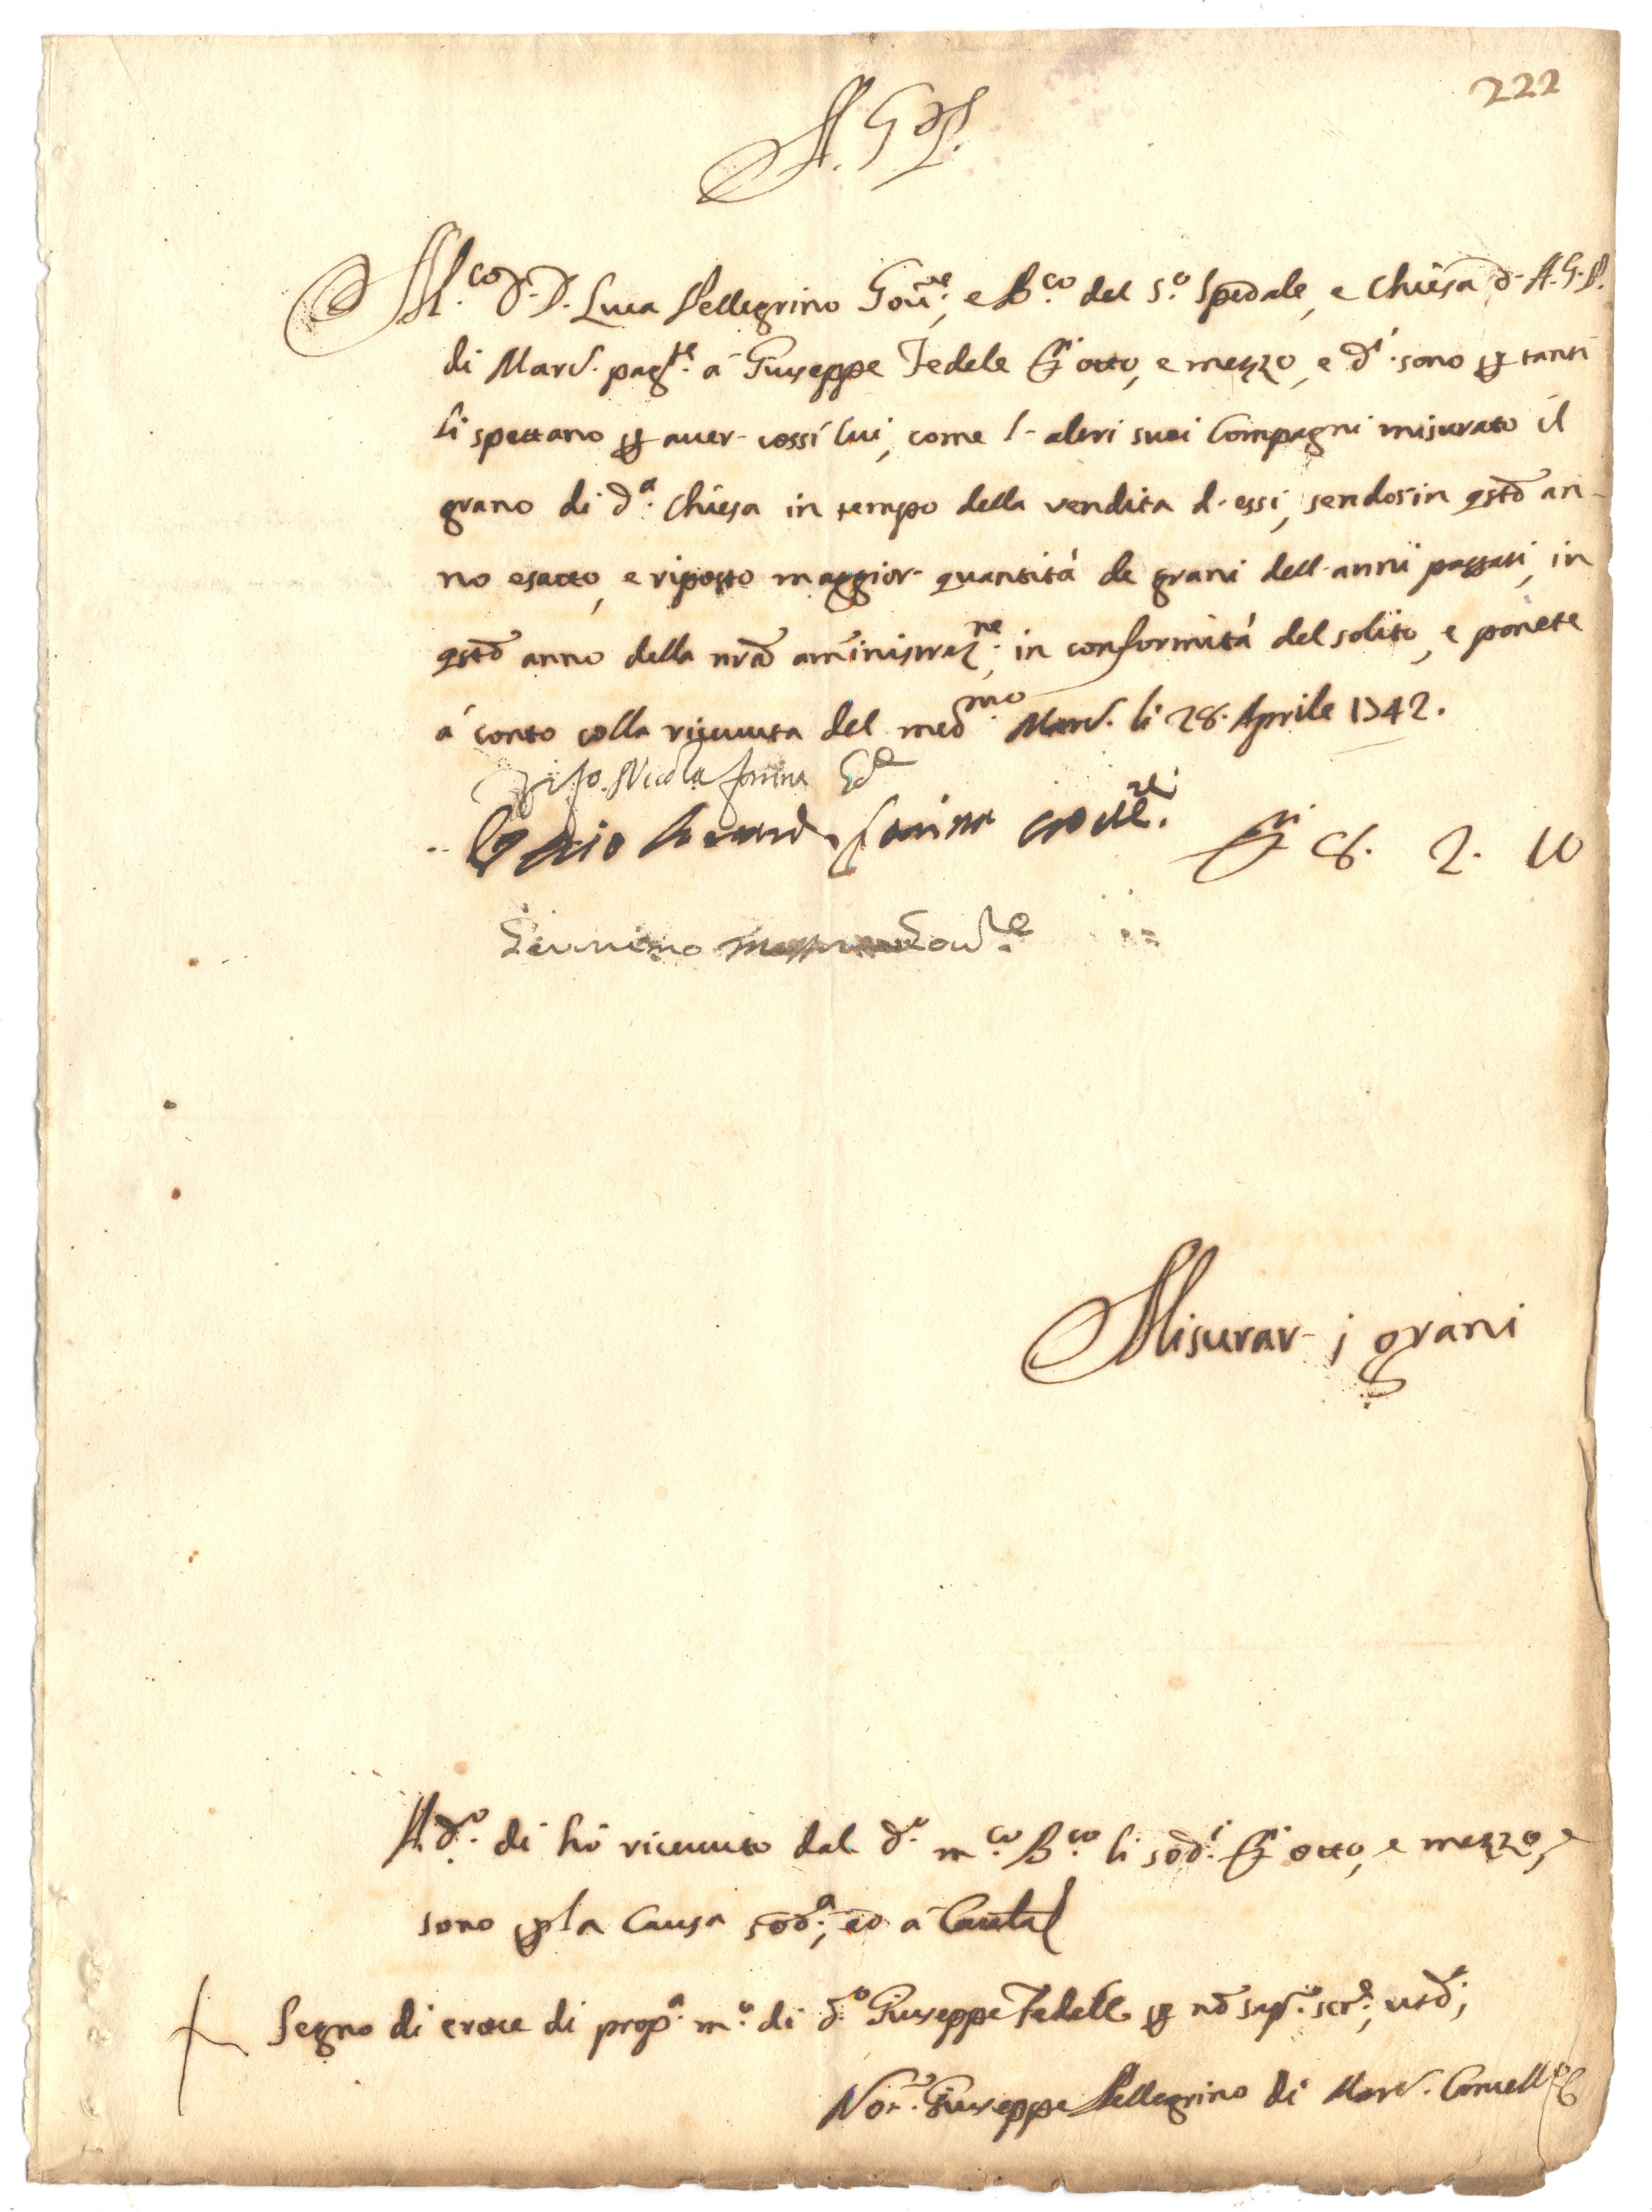 222
A. G. P.
M.co D. D. Luca Pellegrino Gou.re, e B.co del S.o Spedale, e Chiesa d- A. G. P.
di Marc. pag.te á Giuseppe Fedele otto, e mezzo, e d.i sono per tanti
li spettano per auer- cossí lui, come l- altri suoi Compagni misurato il
grano di d.a Chiesa in tempo della vendita d- essi, sendosi in qsto an-
no esatto, e riposto maggior- quantità de grani dell- anni passati, in
qsto anno della nra amministraz.ne, in conformità del solito, e ponete
á conto colla riceuuta del med.mo Marc. li 28. Aprile 1742.
Nicola
Gou.re 8. 2. 10
Gou.re
Misurar- i grani
A d.o dí hò riceuuto dal d.o m.co B.co li sod.i otto, e mezzo, e
sono per la Causa sod.a, ed a Cautela
Segno di croce di prop.a m.o di d.o Giuseppe Fedele per nō sap.e scr.e, ut d.r;
Not.r Giuseppe Pellegrino di Marc. Cancell.re